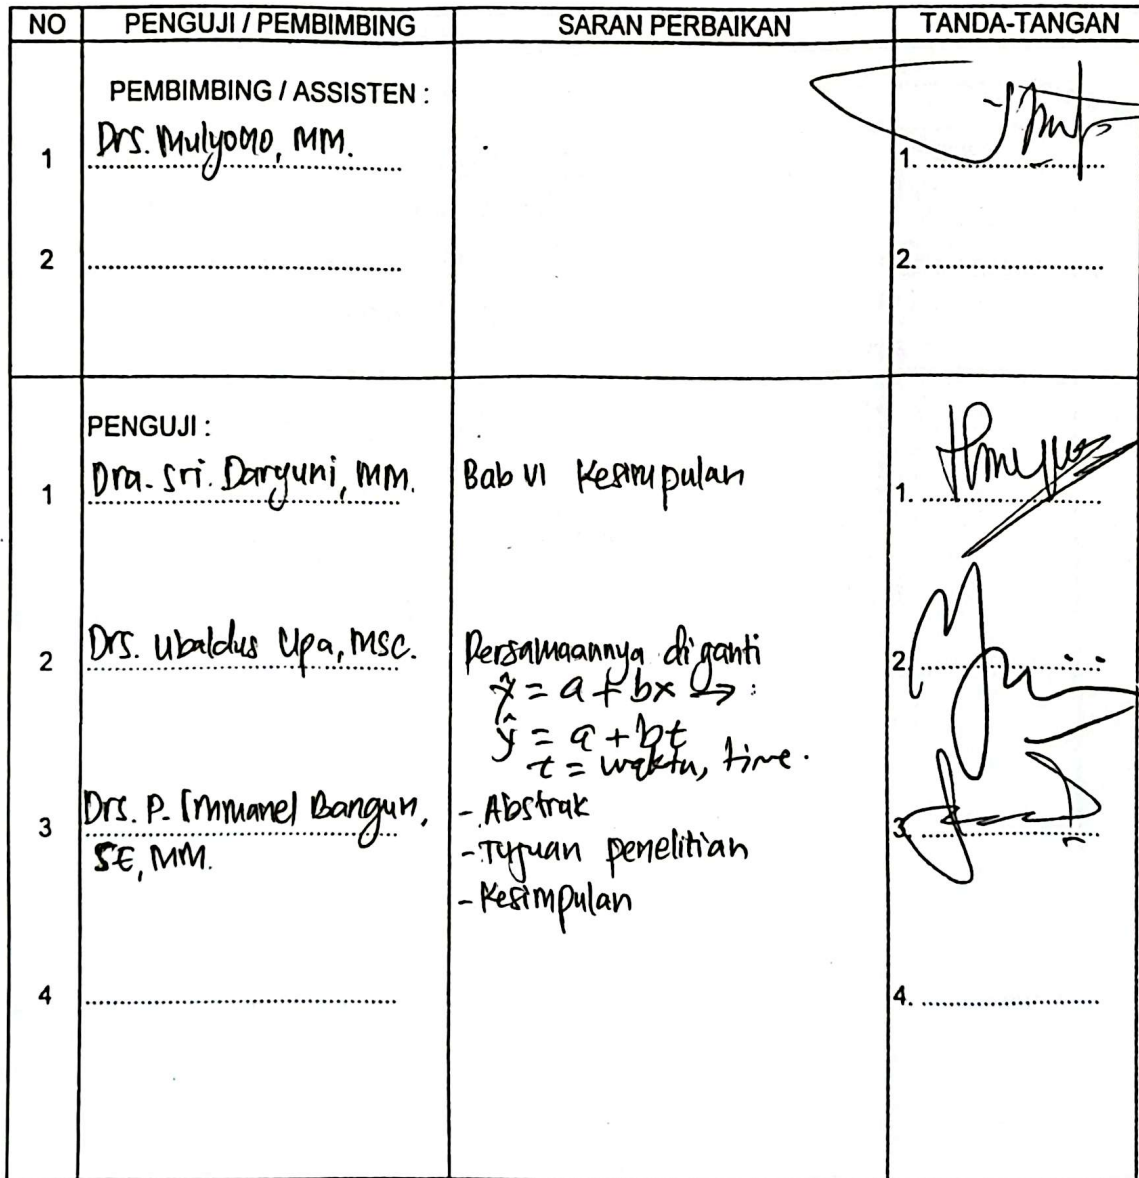 NO PENGUJI / PEMBIMBING SARAN PERBAIKAN TANDA-TANGAN
PEMBIMBING / ASSISTEN :
1 Drs. Mulyono, MM. 1.
2 2.
PENGUJI :
1 Dra. Sri. Daryuni, MM. Bab VI Kesimpulan 1.
2 Drs. Ubaldus Upa, MSC. Persamaannya diganti 2.
ŷ = a + bx →:
ŷ = a + bt
t = waktu, time.
3 Drs. P. Immanel Bangun, - Abstrak 3.
SE, MM. - Tujuan penelitian
- Kesimpulan
4 4.